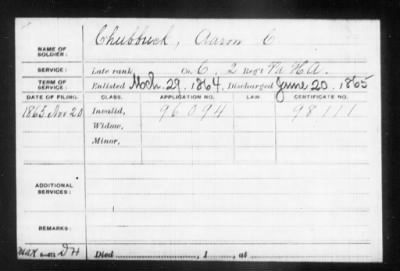 NAME OF SOLDIER: Chubbuck, Aaron C
SERVICE: Late rank Co. C, 2 Reg't Pa H.A.
TERM OF SERVICE: Enlisted Mch. 29, 1864, Discharged June 20, 1865
DATE OF FILING. CLASS. APPLICATION NO. LAW. CERTIFICATE NO.
1865 Nov 20 Invalid, 96094 98111
Widow,
Minor,
ADDITIONAL SERVICES:
REMARKS:
Died , 1 , at